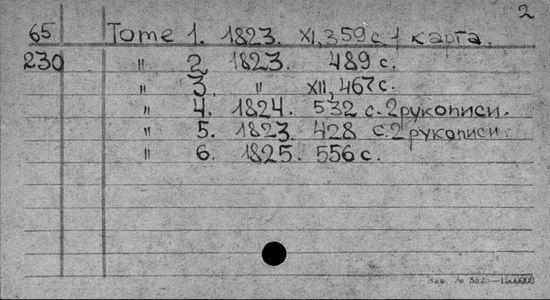 2
65 Tome 1. 1823. XI, 359 с. 1 карта.
230 " 2. 1823. 489 с.
" 3. " XII, 467 с.
" 4. 1824. 532 с. 2 рукописи.
" 5. 1823. 428 с. 2 рукописи.
" 6. 1825. 556 с.